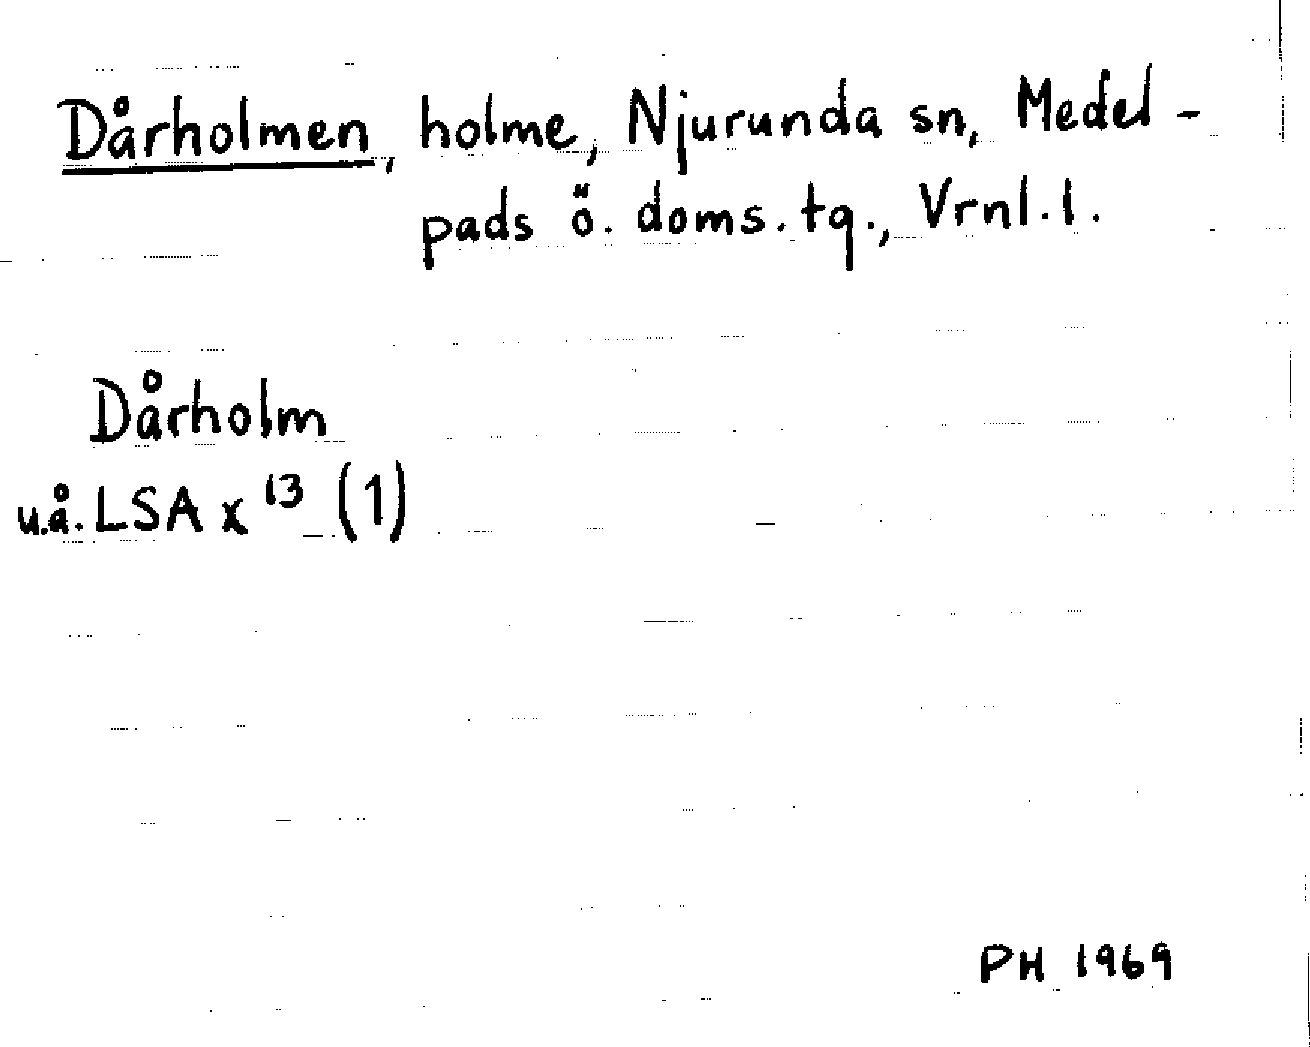 Dårholmen, holme, Njurunda sn, Medel-
pads ö. doms. tg., Vrnl. l.
Dårholm
u.å. LSA x 13 (1)
PH 1969